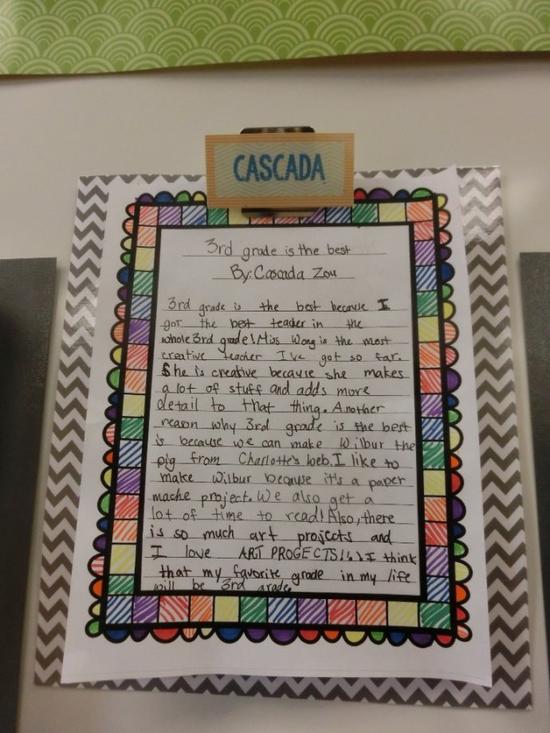 CASCADA
3rd grade is the best
By: Cascada Zou
3rd grade is the best because I
got the best teacher in the
whole 3rd grade! Miss Wong is the most
creative teacher I've got so far.
She is creative because she makes
a lot of stuff and adds more
detail to that thing. Another
reason why 3rd grade is the best
is because we can make Wilbur the
pig from Charlotte's Web. I like to
make Wilbur because it's a paper
mache project. We also get a
lot of time to read! Also, there
is so much art projects and
I love ART PROGECTS!!! I think
that my favorite grade in my life
will be 3rd grade.